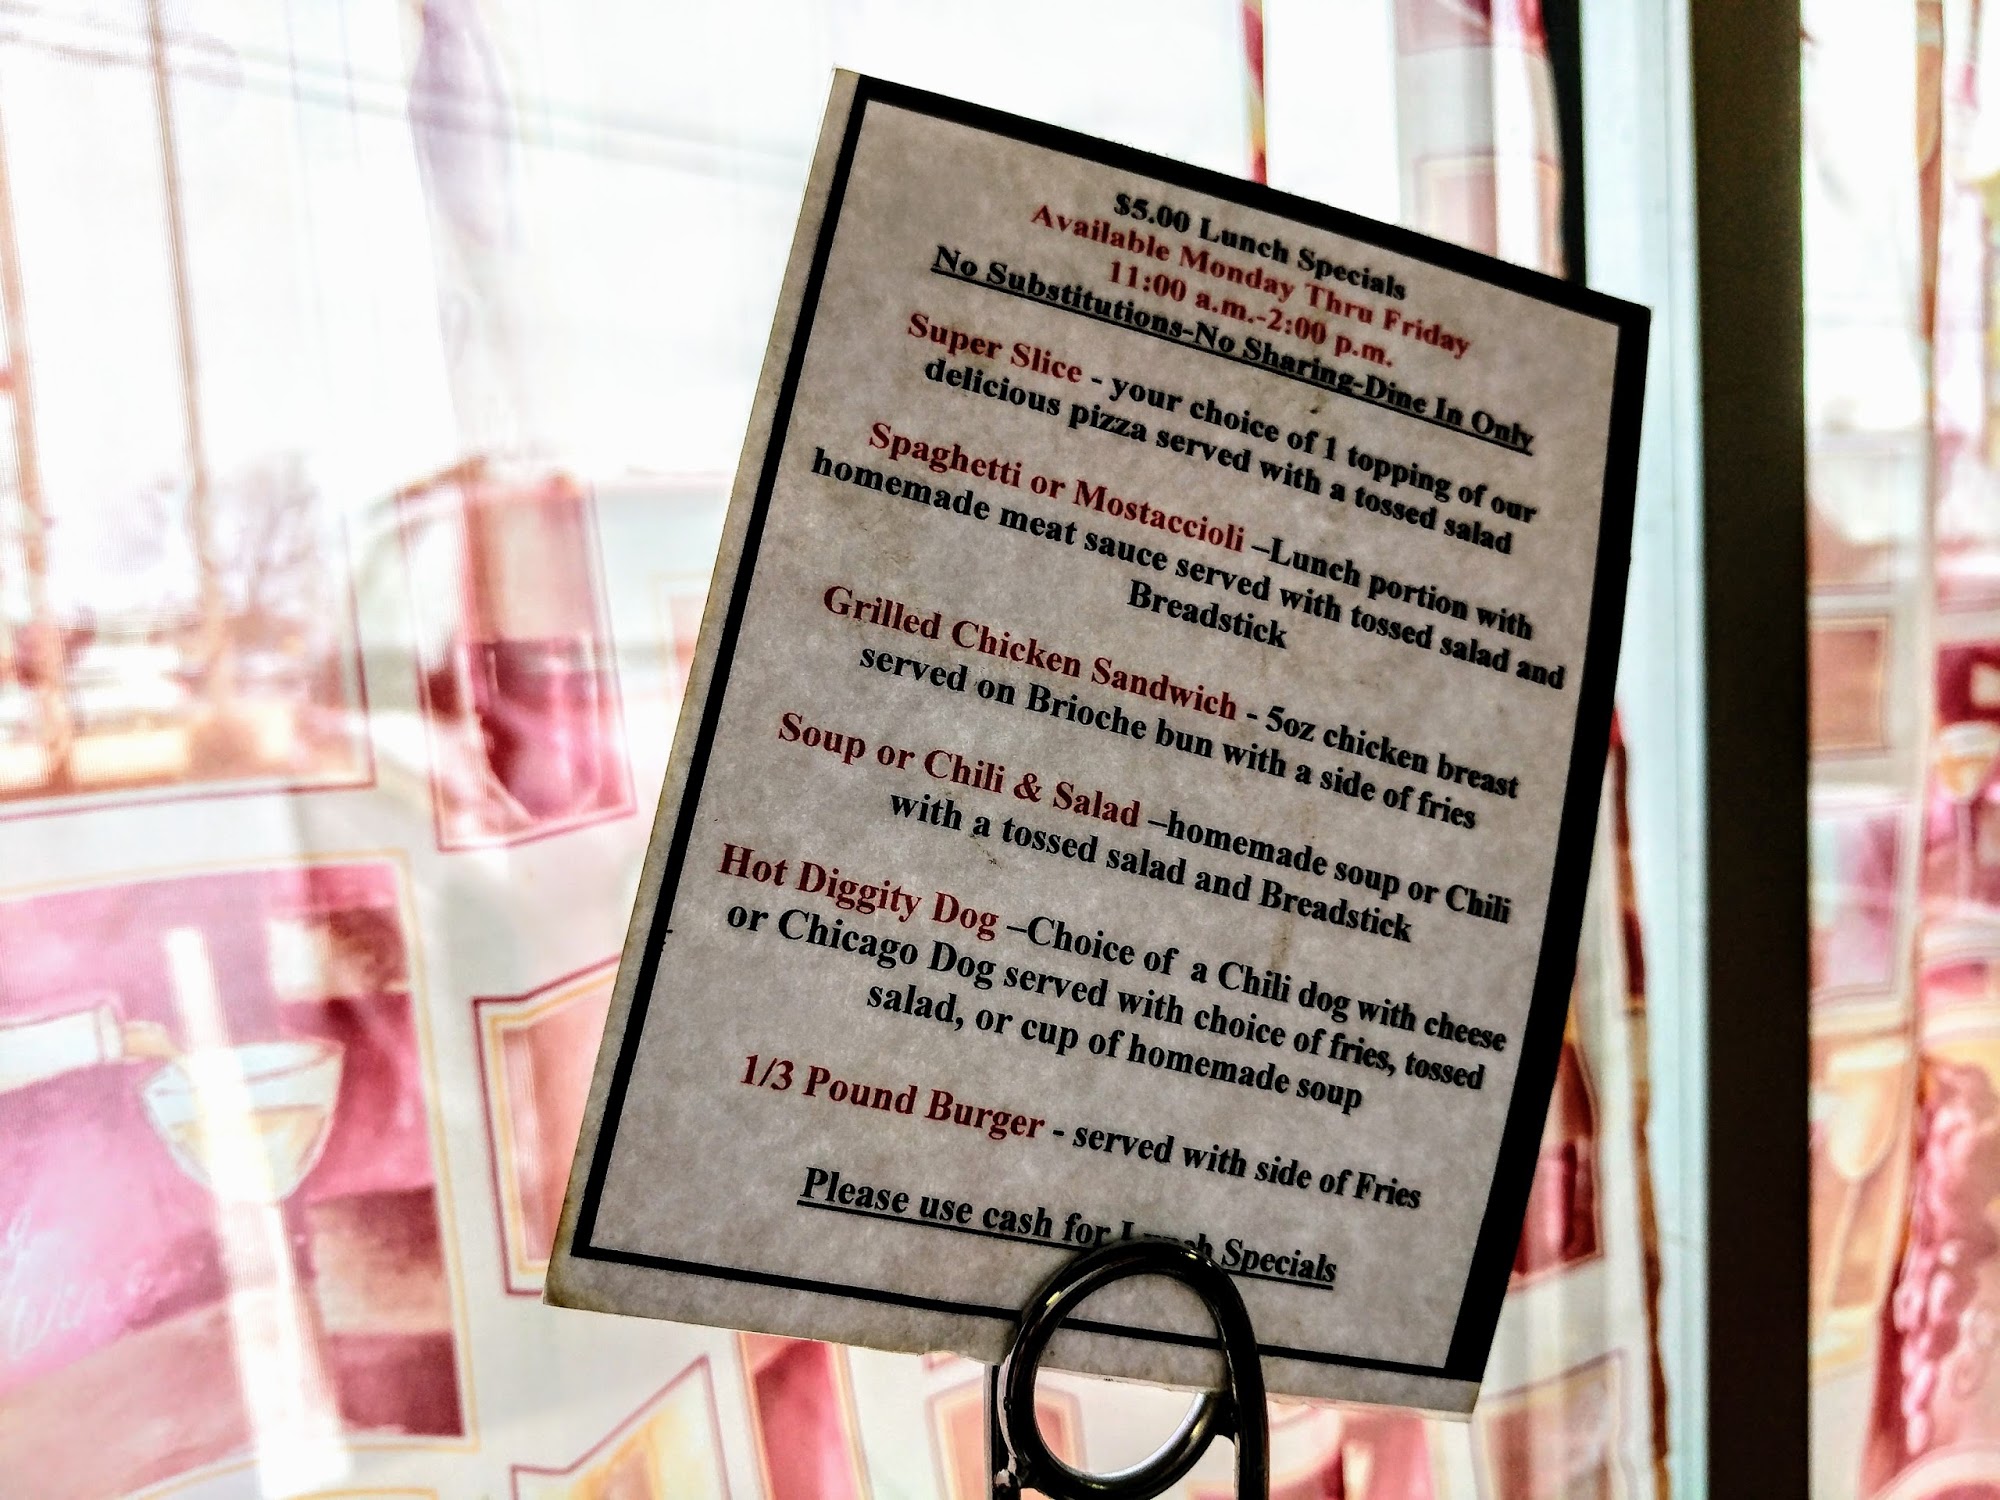 $5.00 Lunch Specials
Available Monday Thru Friday
11:00 a.m.-2:00 p.m.
No Substitutions-No Sharing-Dine In Only
Super Slice - your choice of 1 topping of our
delicious pizza served with a tossed salad
Spaghetti or Mostaccioli –Lunch portion with
homemade meat sauce served with tossed salad and
Breadstick
Grilled Chicken Sandwich - 5oz chicken breast
served on Brioche bun with a side of fries
Soup or Chili & Salad –homemade soup or Chili
with a tossed salad and Breadstick
Hot Diggity Dog –Choice of a Chili dog with cheese
or Chicago Dog served with choice of fries, tossed
salad, or cup of homemade soup
1/3 Pound Burger - served with side of Fries
Please use cash for Lunch Specials